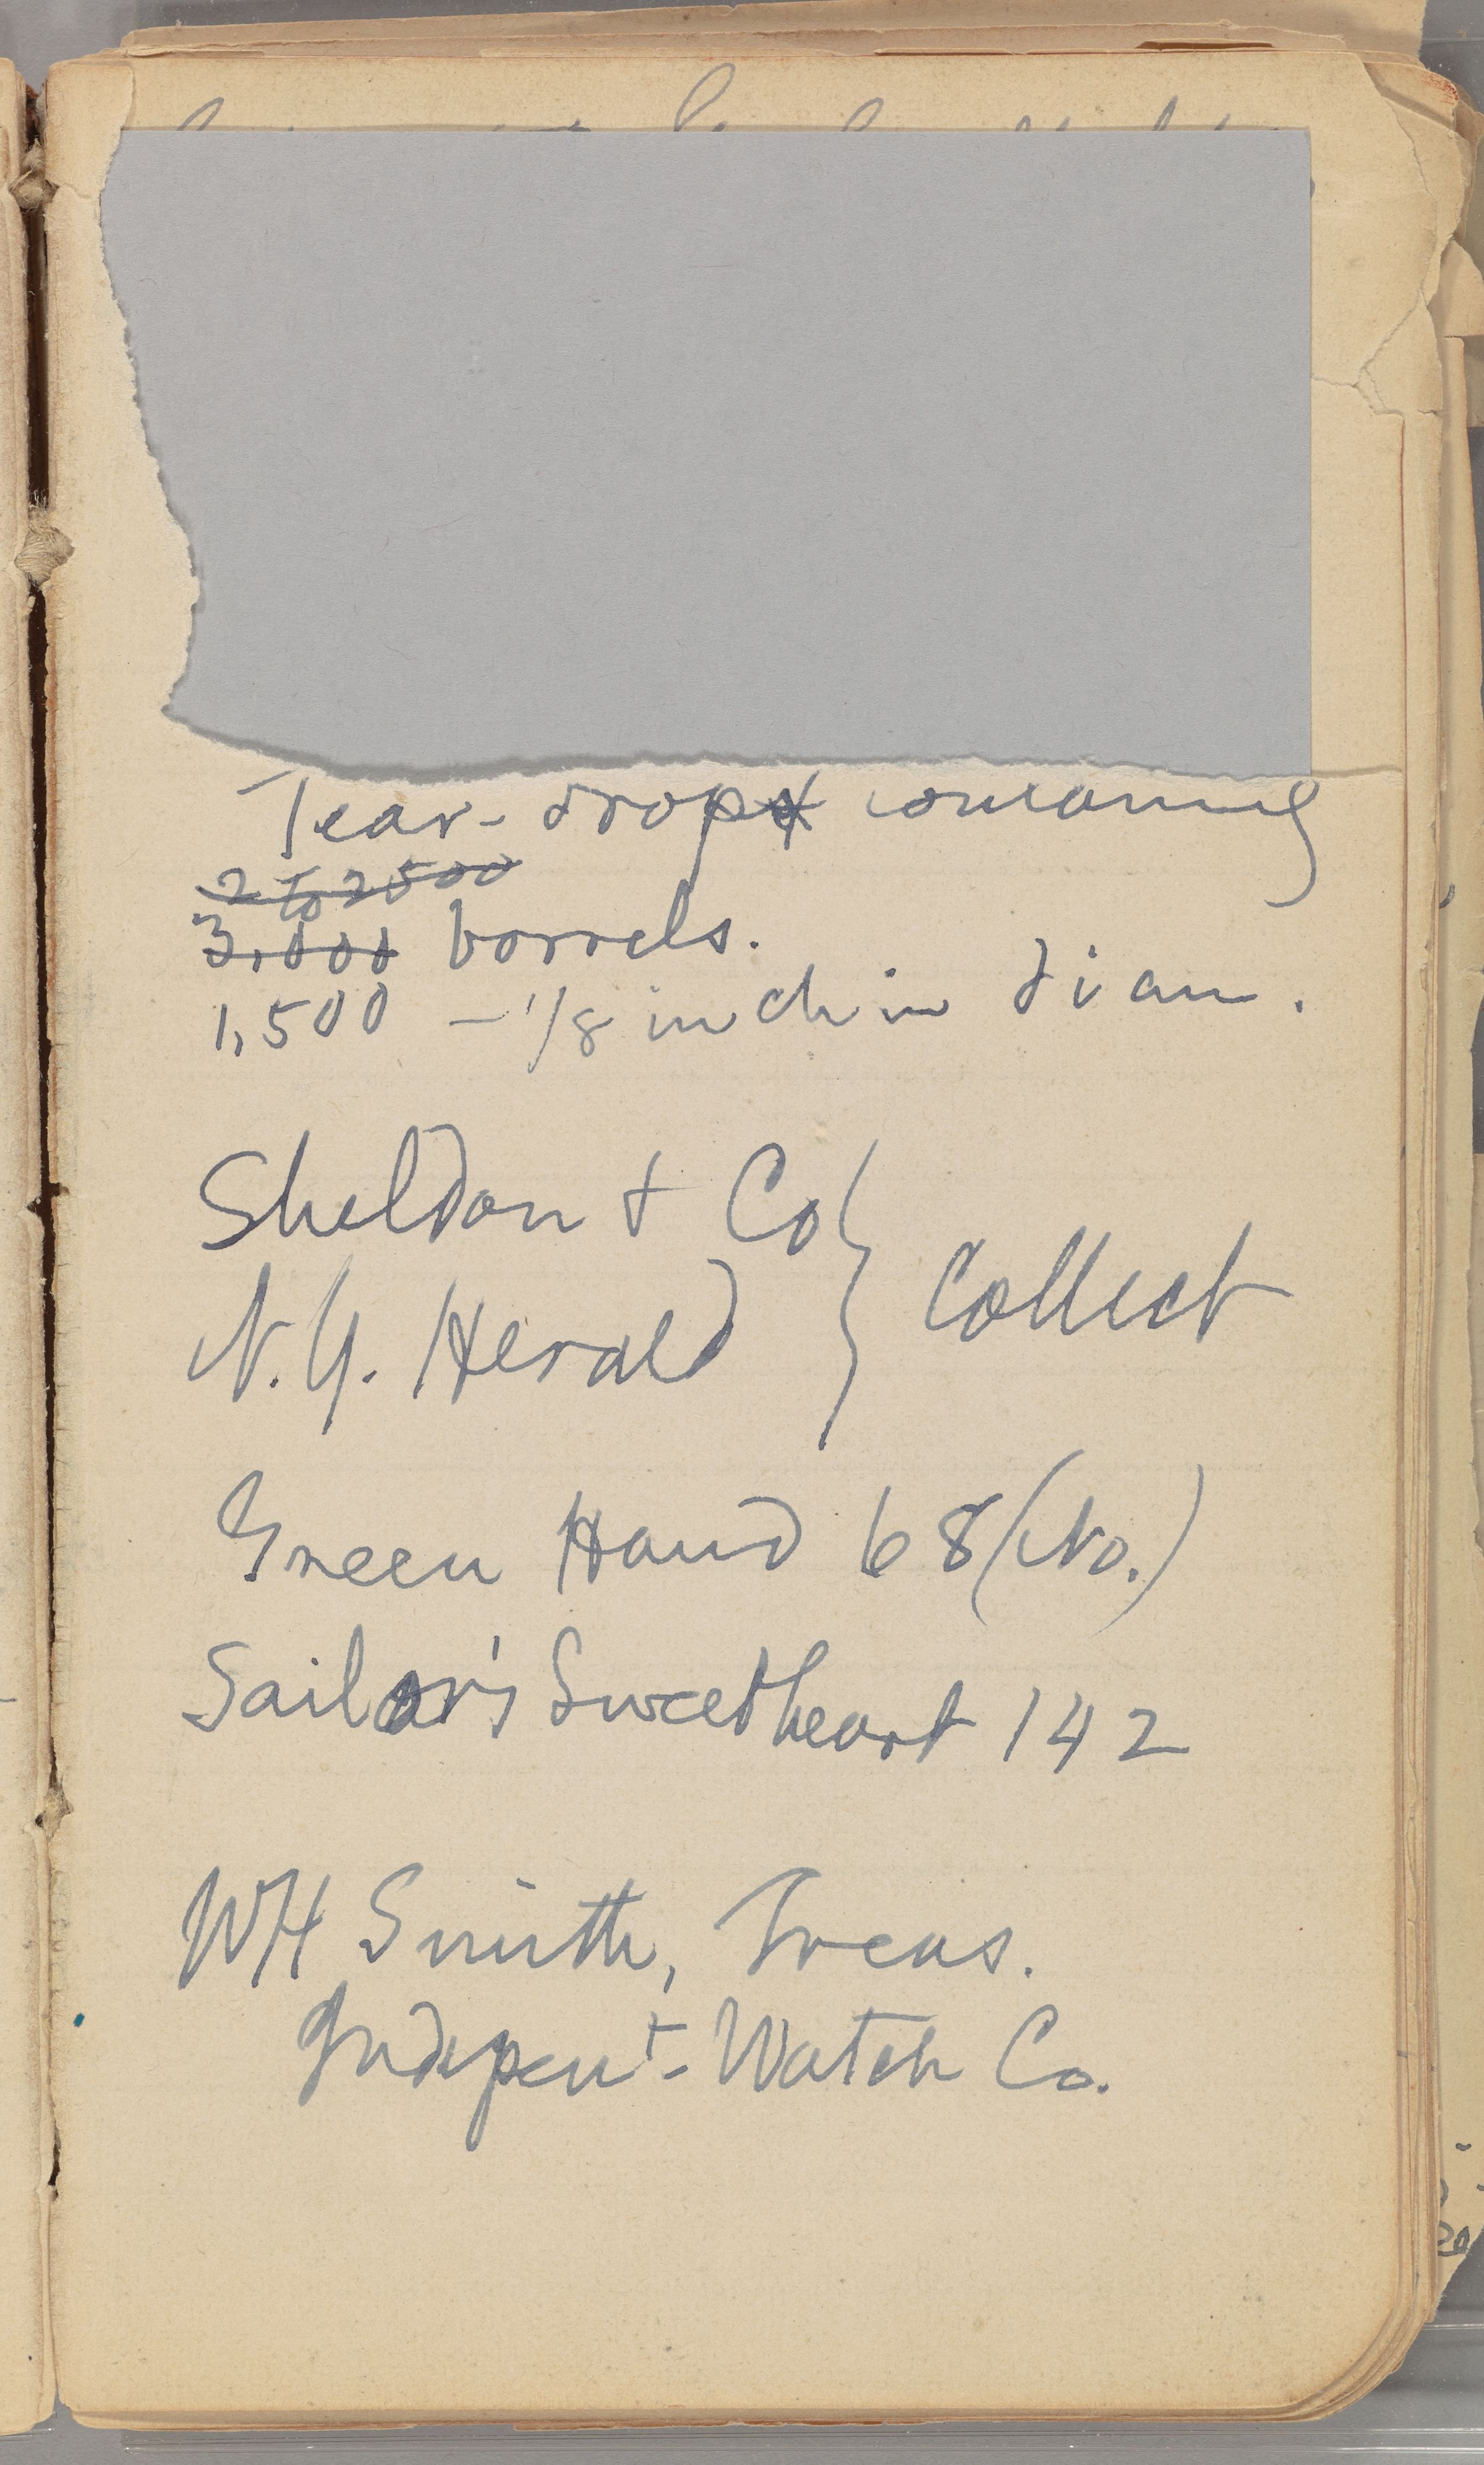 Tear-drop containing
2 to 2500
3,000 barrels.
1,500 — 1/8 inch in diam.
Sheldon & Co
N.Y. Herald } Collect
Green Hand 68 (No.)
Sailor's Sweetheart 142
WH Smith, Treas.
Indepent- Watch Co.